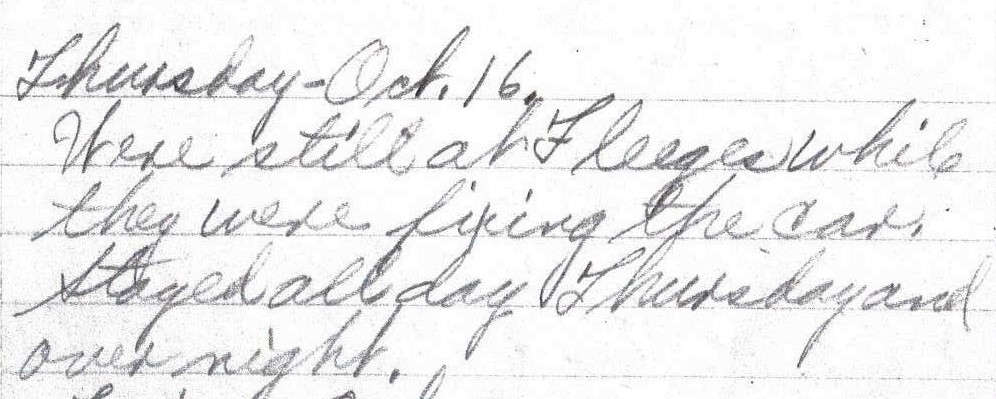 Thursday - Oct. 16.
Were still at Fleeges while
they were fixing the car.
Stayed all day Thursday and
over night.